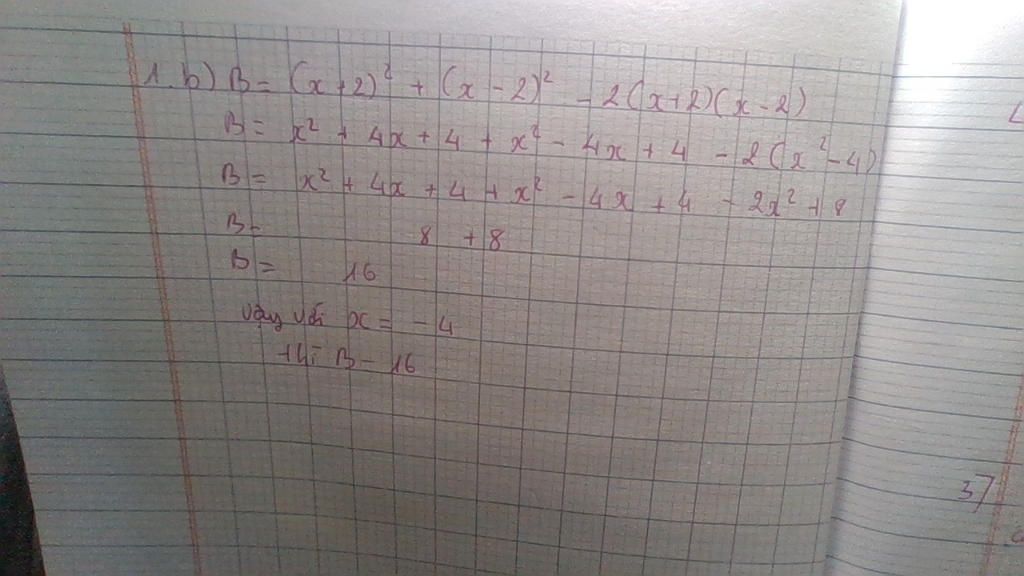 1.b) B = (x+2)² + (x-2)² - 2(x+2)(x-2)
B = x² + 4x + 4 + x² - 4x + 4 - 2(x²-4)
B = x² + 4x + 4 + x² - 4x + 4 - 2x² + 8
B = 8 + 8
B = 16
vậy với x = -4
thì B = 16
37